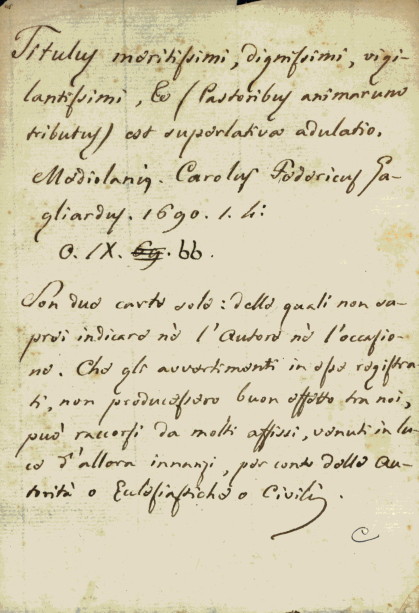 Titulus meritissimi, dignissimi, vigi-
lantissimi, &c (Pastoribus animarum
tributus) est superlativa adulatio.
Mediolani. Carolus Federicus Ga-
gliardus. 1690. 1. h:
O. IX. 69. bb.
Son due carte sole: delle quali non sa-
prei indicare nè l'Autore nè l'occasio-
ne. Che gli avvertimenti in esse registra-
ti, non producessero buon effetto tra noi,
può raccorsi da molti affissi, venuti in lu-
ce d'allora innanzi, per conto delle Au-
torità o Eclesiastiche o Civili.
C